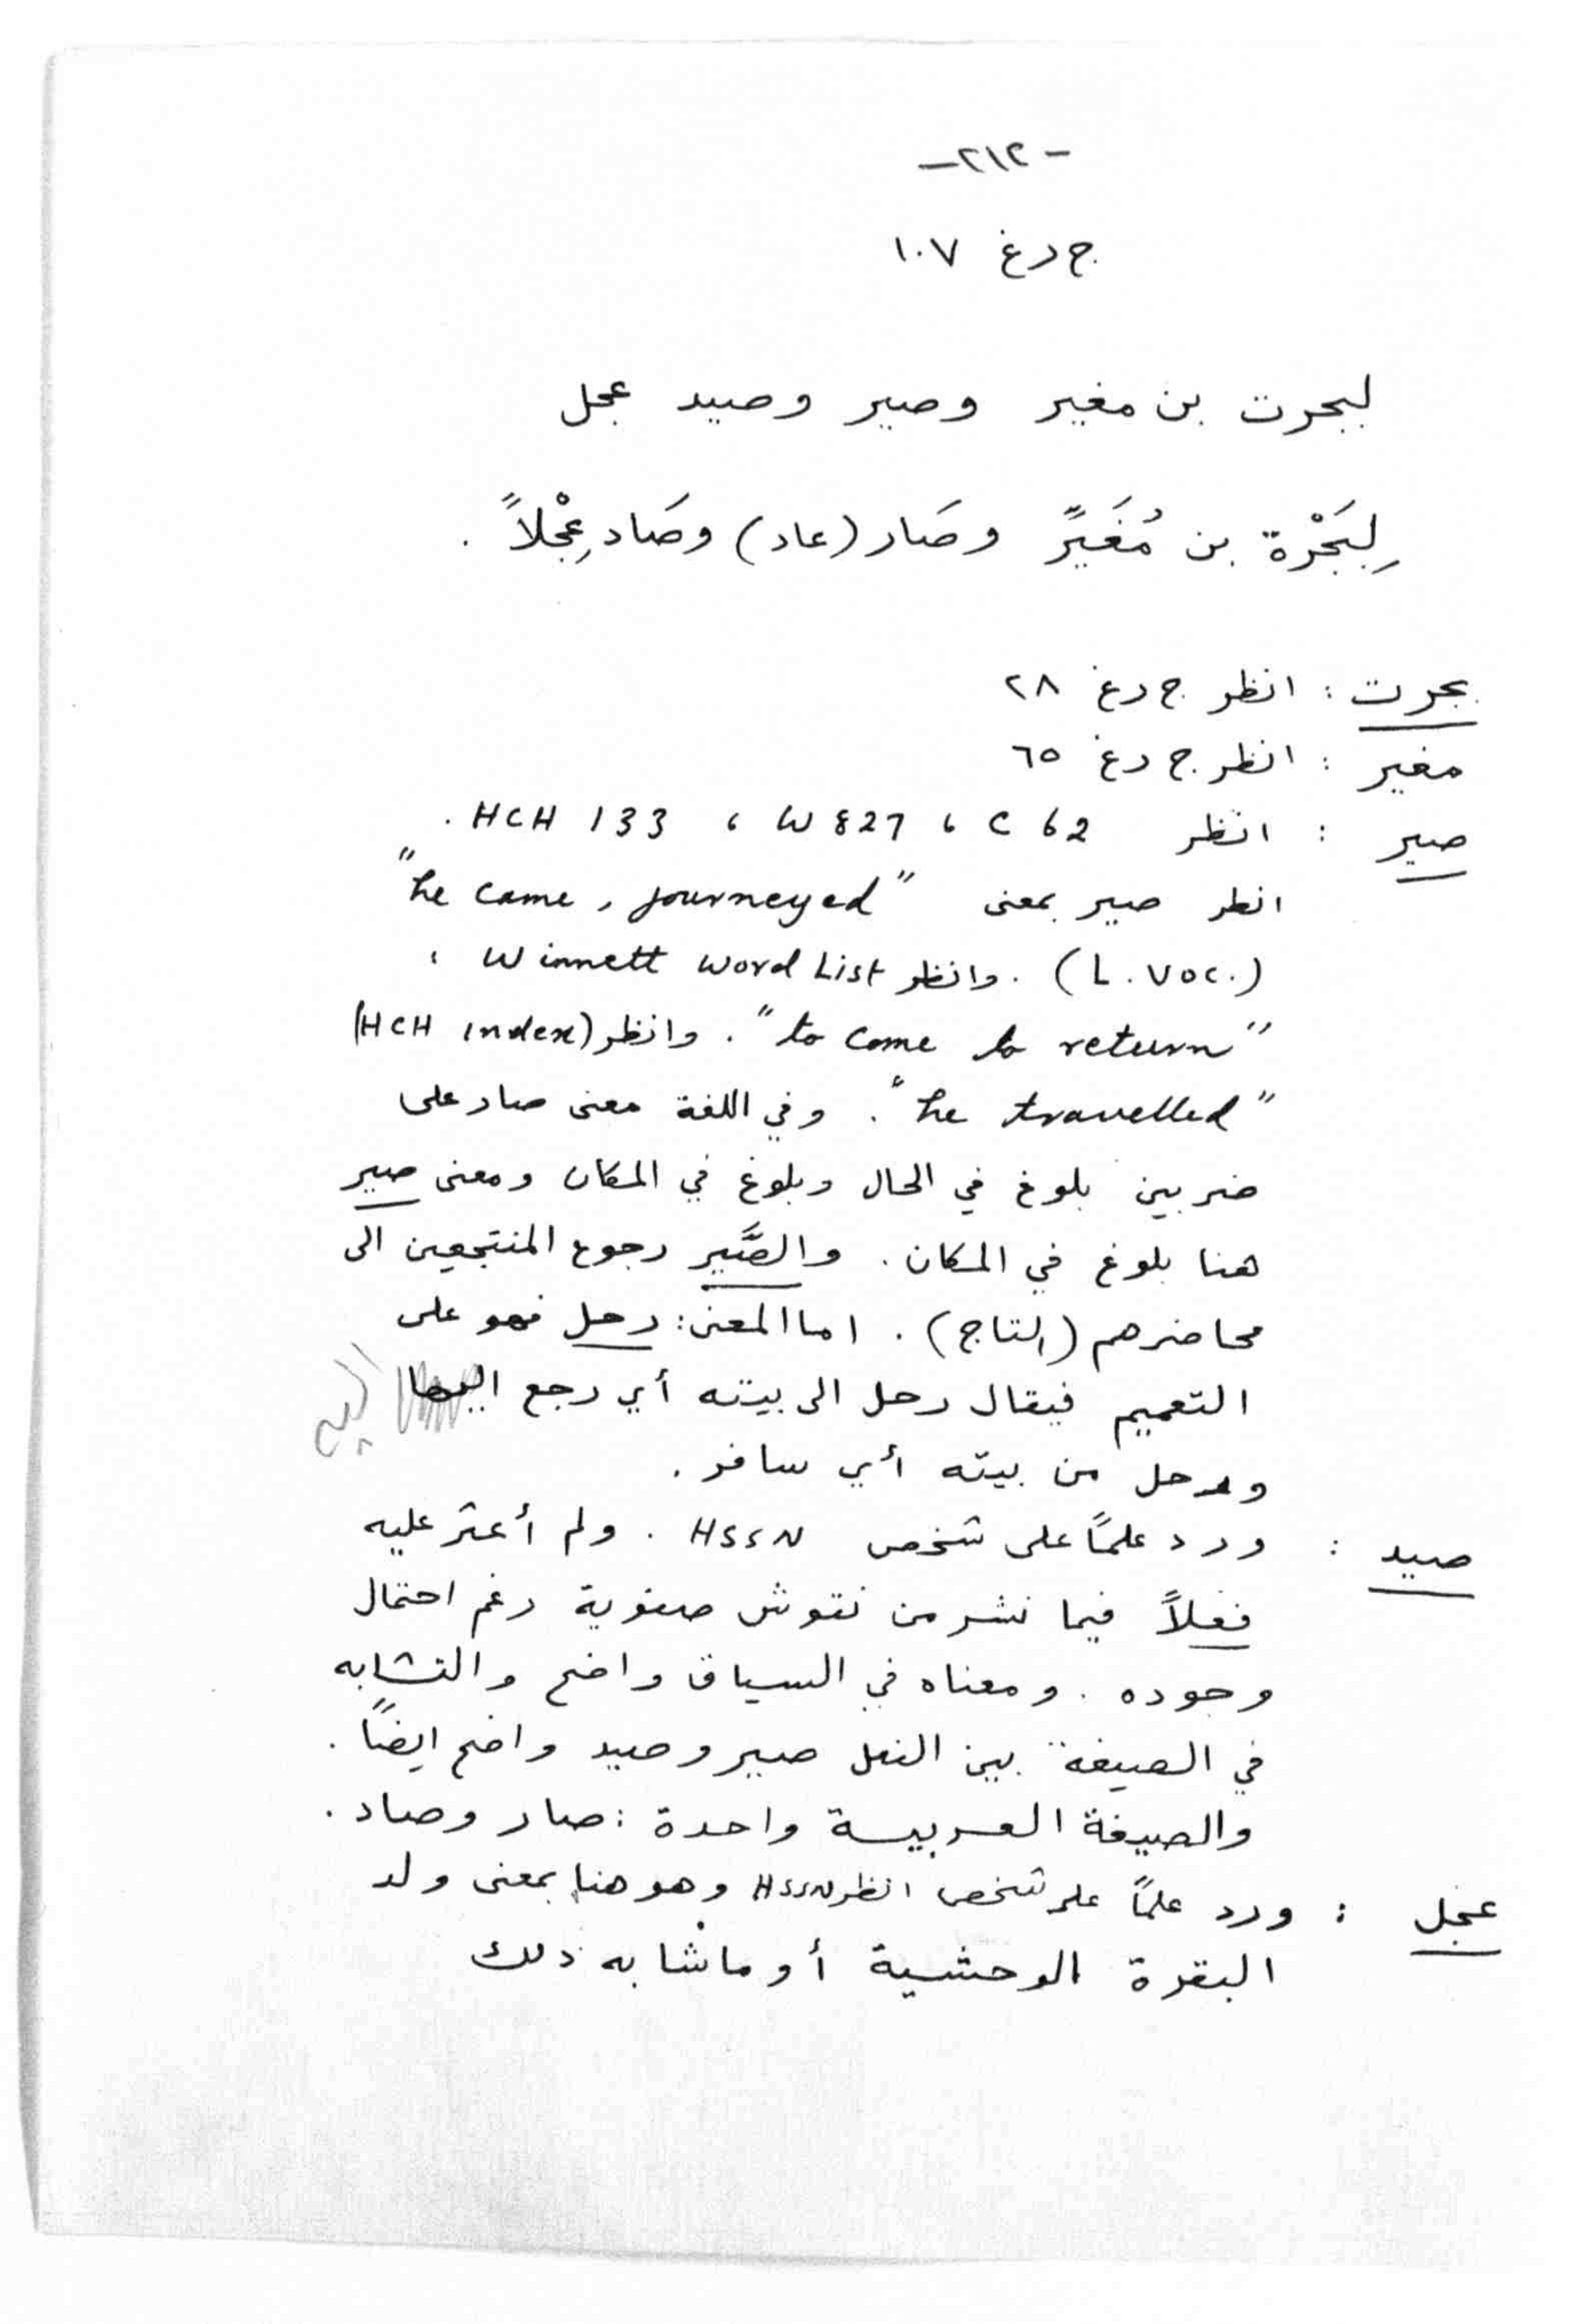 -٢١٢-
ج درغ ١٠٧
لبجرت بن مغير وصير وصيد عجل
لِبَجْرة بن مُغَيِّر وصَار (عاد) وصَاد عِجْلاً .
بجرت : انظر ج درغ ٢٨
مغير : انظر ج درغ ٦٥
صير : انظر HCH 133 ، W 827 ، C 62 .
انظر صير بمعنى "he came, journeyed"
(L. Voc.) . وانظر Winnett word List ،
"to come to return" . وانظر (HCH index)
"he travelled" . وفي اللغة معنى صار على
ضربين بلوغ في الحال وبلوغ في المكان ومعنى صير
هنا بلوغ في المكان . والصَّير رجوع المنتجعين الى
محاضرهم (التاج) . اما المعنى : رحل فهو على
التعميم فيقال رحل الى بيته أي رجع اليه
ورحل من بيته أي سافر .
صيد : ورد علماً على شخص HSSN . ولم أعثر عليه
فعلاً فيما نشر من نقوش صفوية رغم احتمال
وجوده . ومعناه في السياق واضح والتشابه
في الصيغة بين الفعل صير وصيد واضح ايضاً .
والصيغة العربية واحدة : صار وصاد .
عجل : ورد علماً على شخص انظر HSSN وهو هنا بمعنى ولد
البقرة الوحشية أو ما شابه ذلك